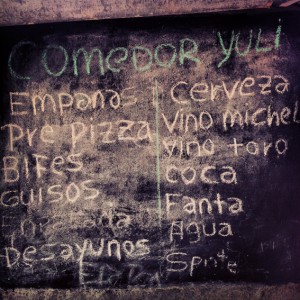 COMEDOR YULI
EMPANAS
Pre Pizza
BIFES
GUISOS
Desayunos
Cerveza
Vino Michel
Vino toro
coca
Fanta
Agua
Sprite